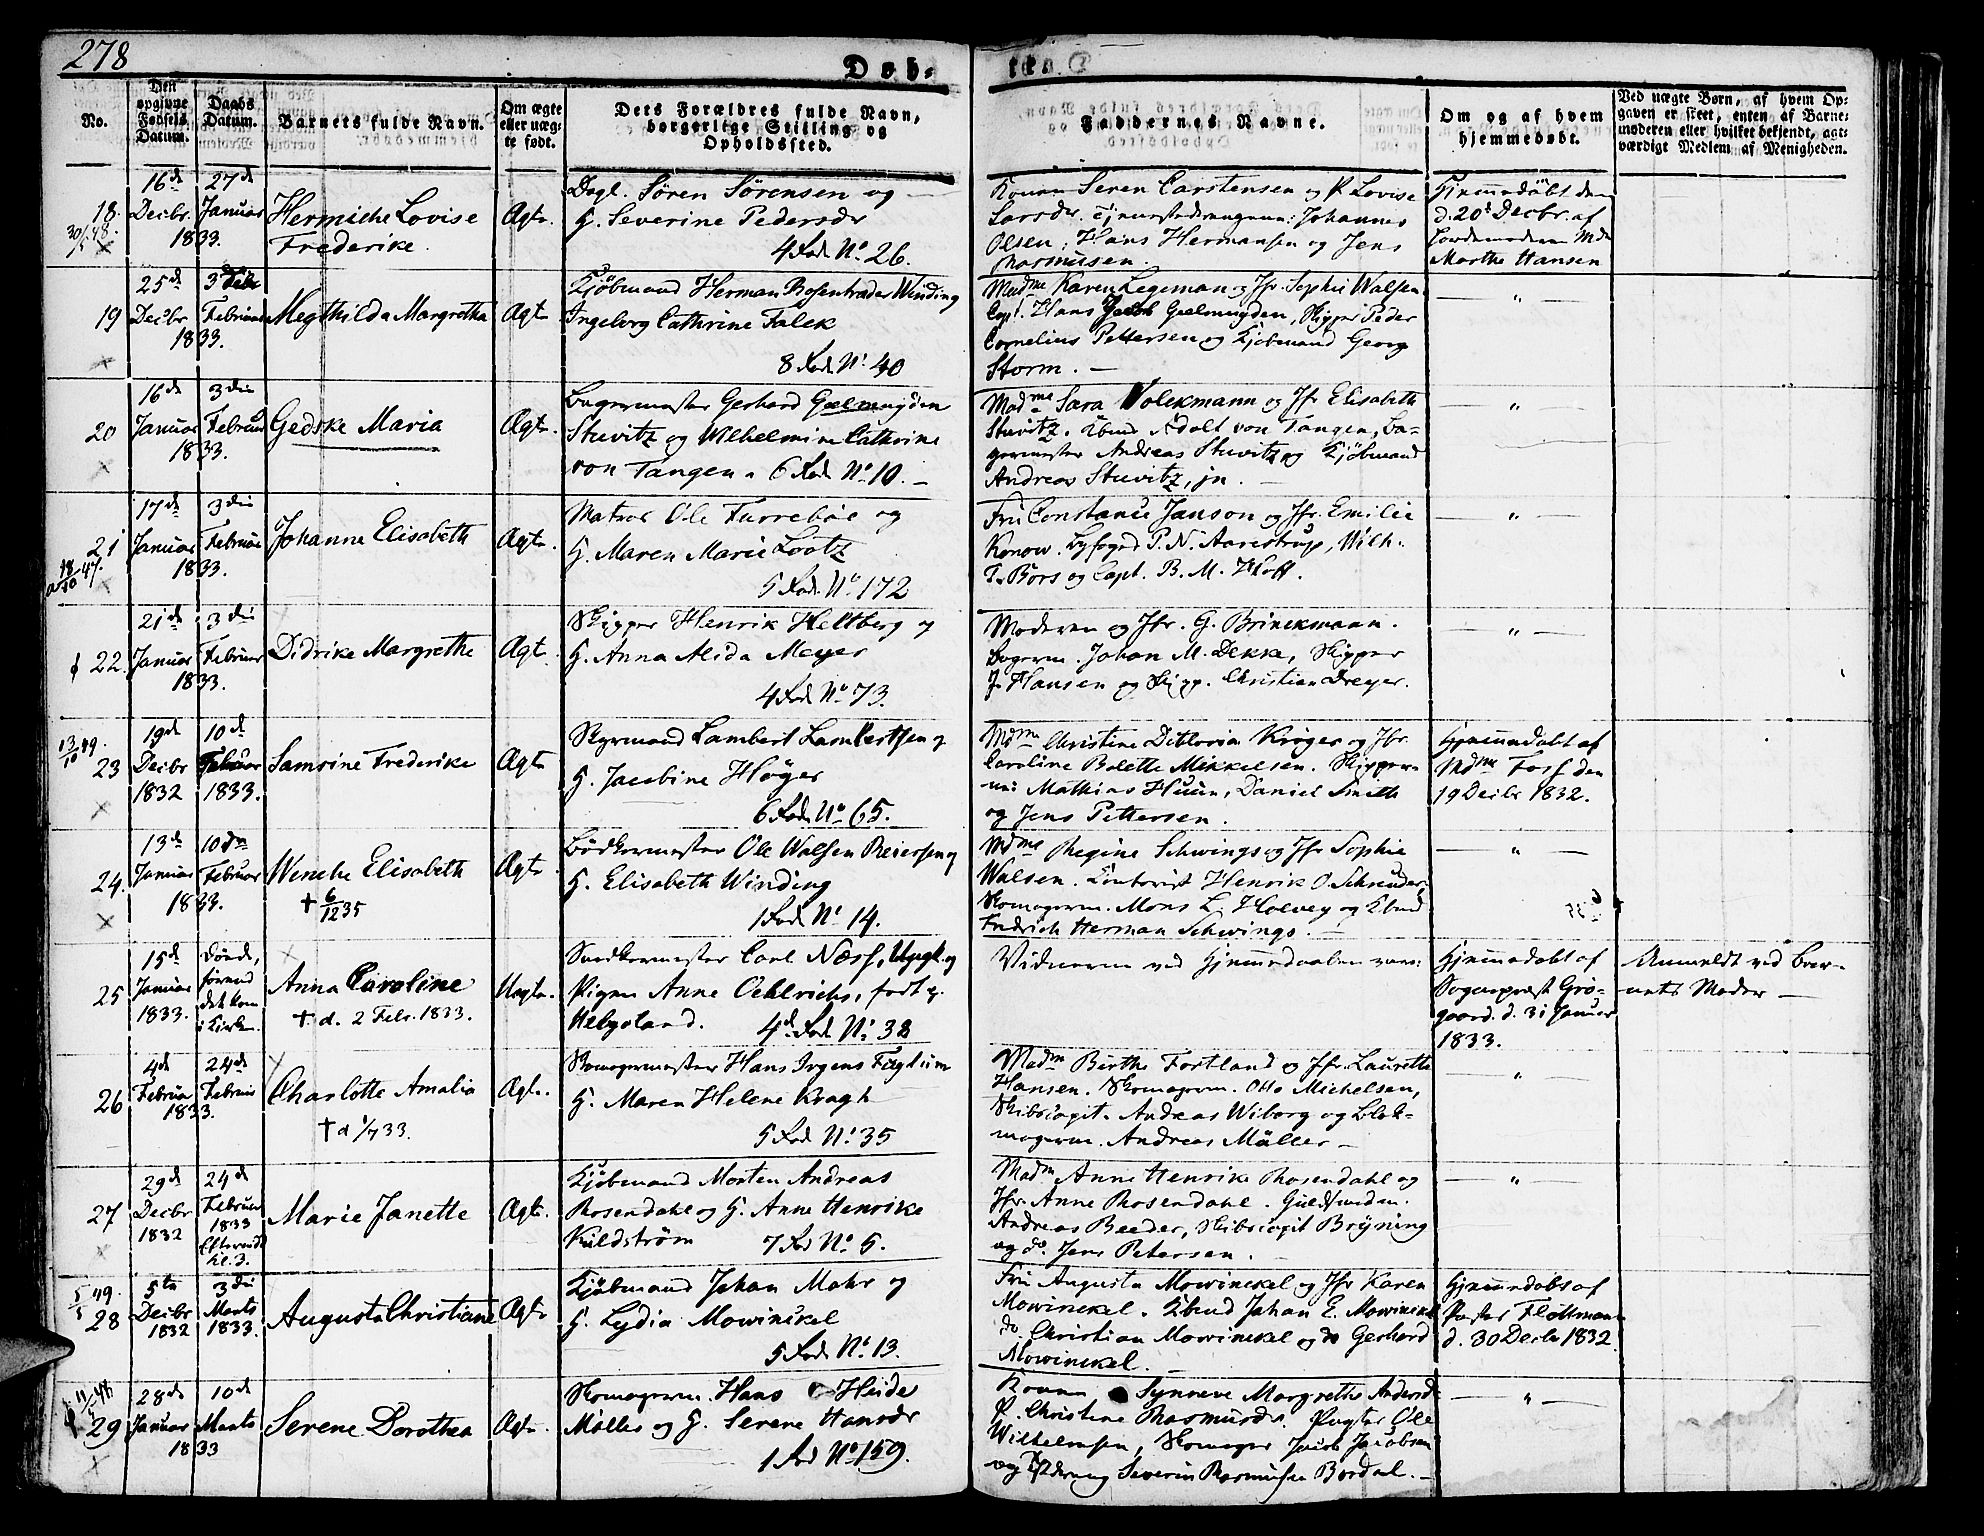 278
Døb-
te.
No.
Den opgivne Fødsels Datum.
Daabs Datum.
Barnets fulde Navn.
Om ægte eller uæg-
te født.
Dets Forældres fulde Navn,
borgerlige Stilling og
Opholdssted.
Faddernes Navne.
Om og af hvem
hjemmedøbt.
Ved uægte Børn, af hvem Op-
gaven er skeet, enten af Barne-
moderen eller hvilket bekjendt, agt-
værdigt Medlem af Menigheden.
18.
16de Decbr. 1833.
27de Januar
Hermiche Lovise
Frederike.
Ægte.
Dagl. Søren Sørensen og
H. Severine Pedersdr
4 Rode No. 26.
Konen Seren Carstensen og P. Lovise
Larsdr. Johannes
Olsen, Hans Hermansen og Jens
Rasmusen.
Hjemmedöbt den
d. 20de Decbr. af
Jordemoderen Mdm
Marthe Hansen
19
25de Decbr 1833.
3die Februar
Megthilda Margretha
Ægte
Kjøbmand Herman Rosentrader Winding
Ingeborg Cathrine Falck
8 Rode No. 40
Madme Karen Legeman og Jfr. Sophie Walsen
Capt. Hans Jacob Geelmuyden, Skipper Peder
Cornelius Pettersen og Kjøbmand Georg
Storm. —
— " —
20
16de Januar 1833.
3die Februar
Gedske Maria
Ægte.
Bagermester Gerhard Geelmuyden
Stuvitz og Wilhelmine Cathrine
von Tangen. 6 Rode No. 10. —
Madme Sara Volckmann og Jfr Elisabeth
Stuvitz. Kbmd Adolt von Tangen, Ba-
germester Andreas Stuvitz og Kjøbmand
Andreas Stuvitz, jn. —
— " —
21
17de Januar 1833.
3die Februar
Johanne Elisabeth
Ægte.
Matros Ole Furrebøe og
H. Maren Marie Lootz
5 Rode No. 172
Fru Constance Janson og Jfr. Emilie
Konow. Byfoged P. N. Aarestrup, Wilh.
T. Bors og Capt. B. M. Hoff.
— " —
22.
21de Januar 1833.
3die Februar
Didrike Margrethe
Ægte.
Skipper Henrik Heltberg og
H. Anna Alida Meyer
4 Rode No. 73.
Moderen og Jfr. G. Brinckmann.
Bagerm. Johan M. Dekke, Skipper
J. Hansen og Skipp. Christian Dreyer.
— " —
13/10 49.
23
19de Decbr 1832
10de Februar 1833.
Samsine Frederike
Ægte
Styrmand Lambert Lambertsen og
H. Jacobine Høyer
6 Rode No. 65.
Mdme Christine Ditlovia Krøger og Jfr.
Caroline Bolette Mikkelsen. Skipper-
ne: Mathias Huun, Daniel Smith
og Jens Pettersen.
Hjemmedøbt af
Mdme Foss den
19 Decbr 1832.
24.
13de Januar 1833.
10de Februar
Wenche Elisabeth
† 6/12 35
Ægte.
Bødkermester Ole Walsen Reiersen og
H. Elisabeth Winding
1 Rode No. 14.
Mdme Regine Schwings og Jfr Sophie
Walsen. Contorist Henrik O. Schrøder,
Skomagerm. Mons L. Holvey og Kbmd
Fredrich Herman Schwings. —
— " —
25
15de Januar 1833.
Døde,
førend
det kom
i Kirken.
Anna Caroline
† d. 2 Febr. 1833.
Uægte.
Snedkermester Carl Næss, Ungk. og
Pigen Anne Oehlrichs, født p.
Helgoland. 4de Rode No. 38
Vidnerne ved Hjemmedaaben vare:
Hjemmedøbt af
Sognepræst Grø-
gaard. d. 31 Januar
1833.
Anmeldt ved Bar-
nets Moder —
26
4de Februar 1833.
24de Februar
Charlotte Amalia
† d 1/7 33.
Ægte.
Skomagermester Hans Irgens Fastum
H. Maren Helene Kragh
5 Rode No. 35
Madm Birthe Fortland og Jfr. Laurette
Hansen. Skomagerm. Otto Michelsen,
Skibscapit. Andreas Wiborg og Blok-
magerm. Andreas Müller —
"
27
29de Decbr 1832
24de Februar 1833
Eftermid. kl. 3.
Marie Janette
Ægte.
Kjøbmand Morten Andreas
Rosendahl og H. Anne Henrike
Kildstrøm 7 Rode No. 5.
Madm Anne Henrike Rosendahl og
Jfr. Anne Rosendahl. Guldsmeden.
Andreas Beeder, Skibscapit Brÿning
og do. Jens Petersen.
— " —
5/5 49.
28
5te Decbr 1832
3die Marts 1833.
Augusta Christiane
Ægte
Kjøbmand Johan Mohr og
H. Lydia Mowinckel
5 Rode No. 13.
Fru Augusta Mowinckel og Jfr Karen
Mowinckel. Kbmd Johan E. Mowinckel
do Christian Mowinckel og do Gerhard
Mowinckel.
Hjemmedøbt af
Pastor Flottmann
d. 30 Decbr 1832.
29
28de Januar 1833
10de Marts
Serene Dorothea
Ægte.
Skomagerm. Hans Heide
Møller og H. Serene Hansdr
1 Rode No. 159.
Konen Synneve Margrethe Andersd
P. Christine Rasmusdr. Ole
Wilhelmsen, Skomager Jacob Jacobsen
og Severin Rasmusen Bordal. —
— " —